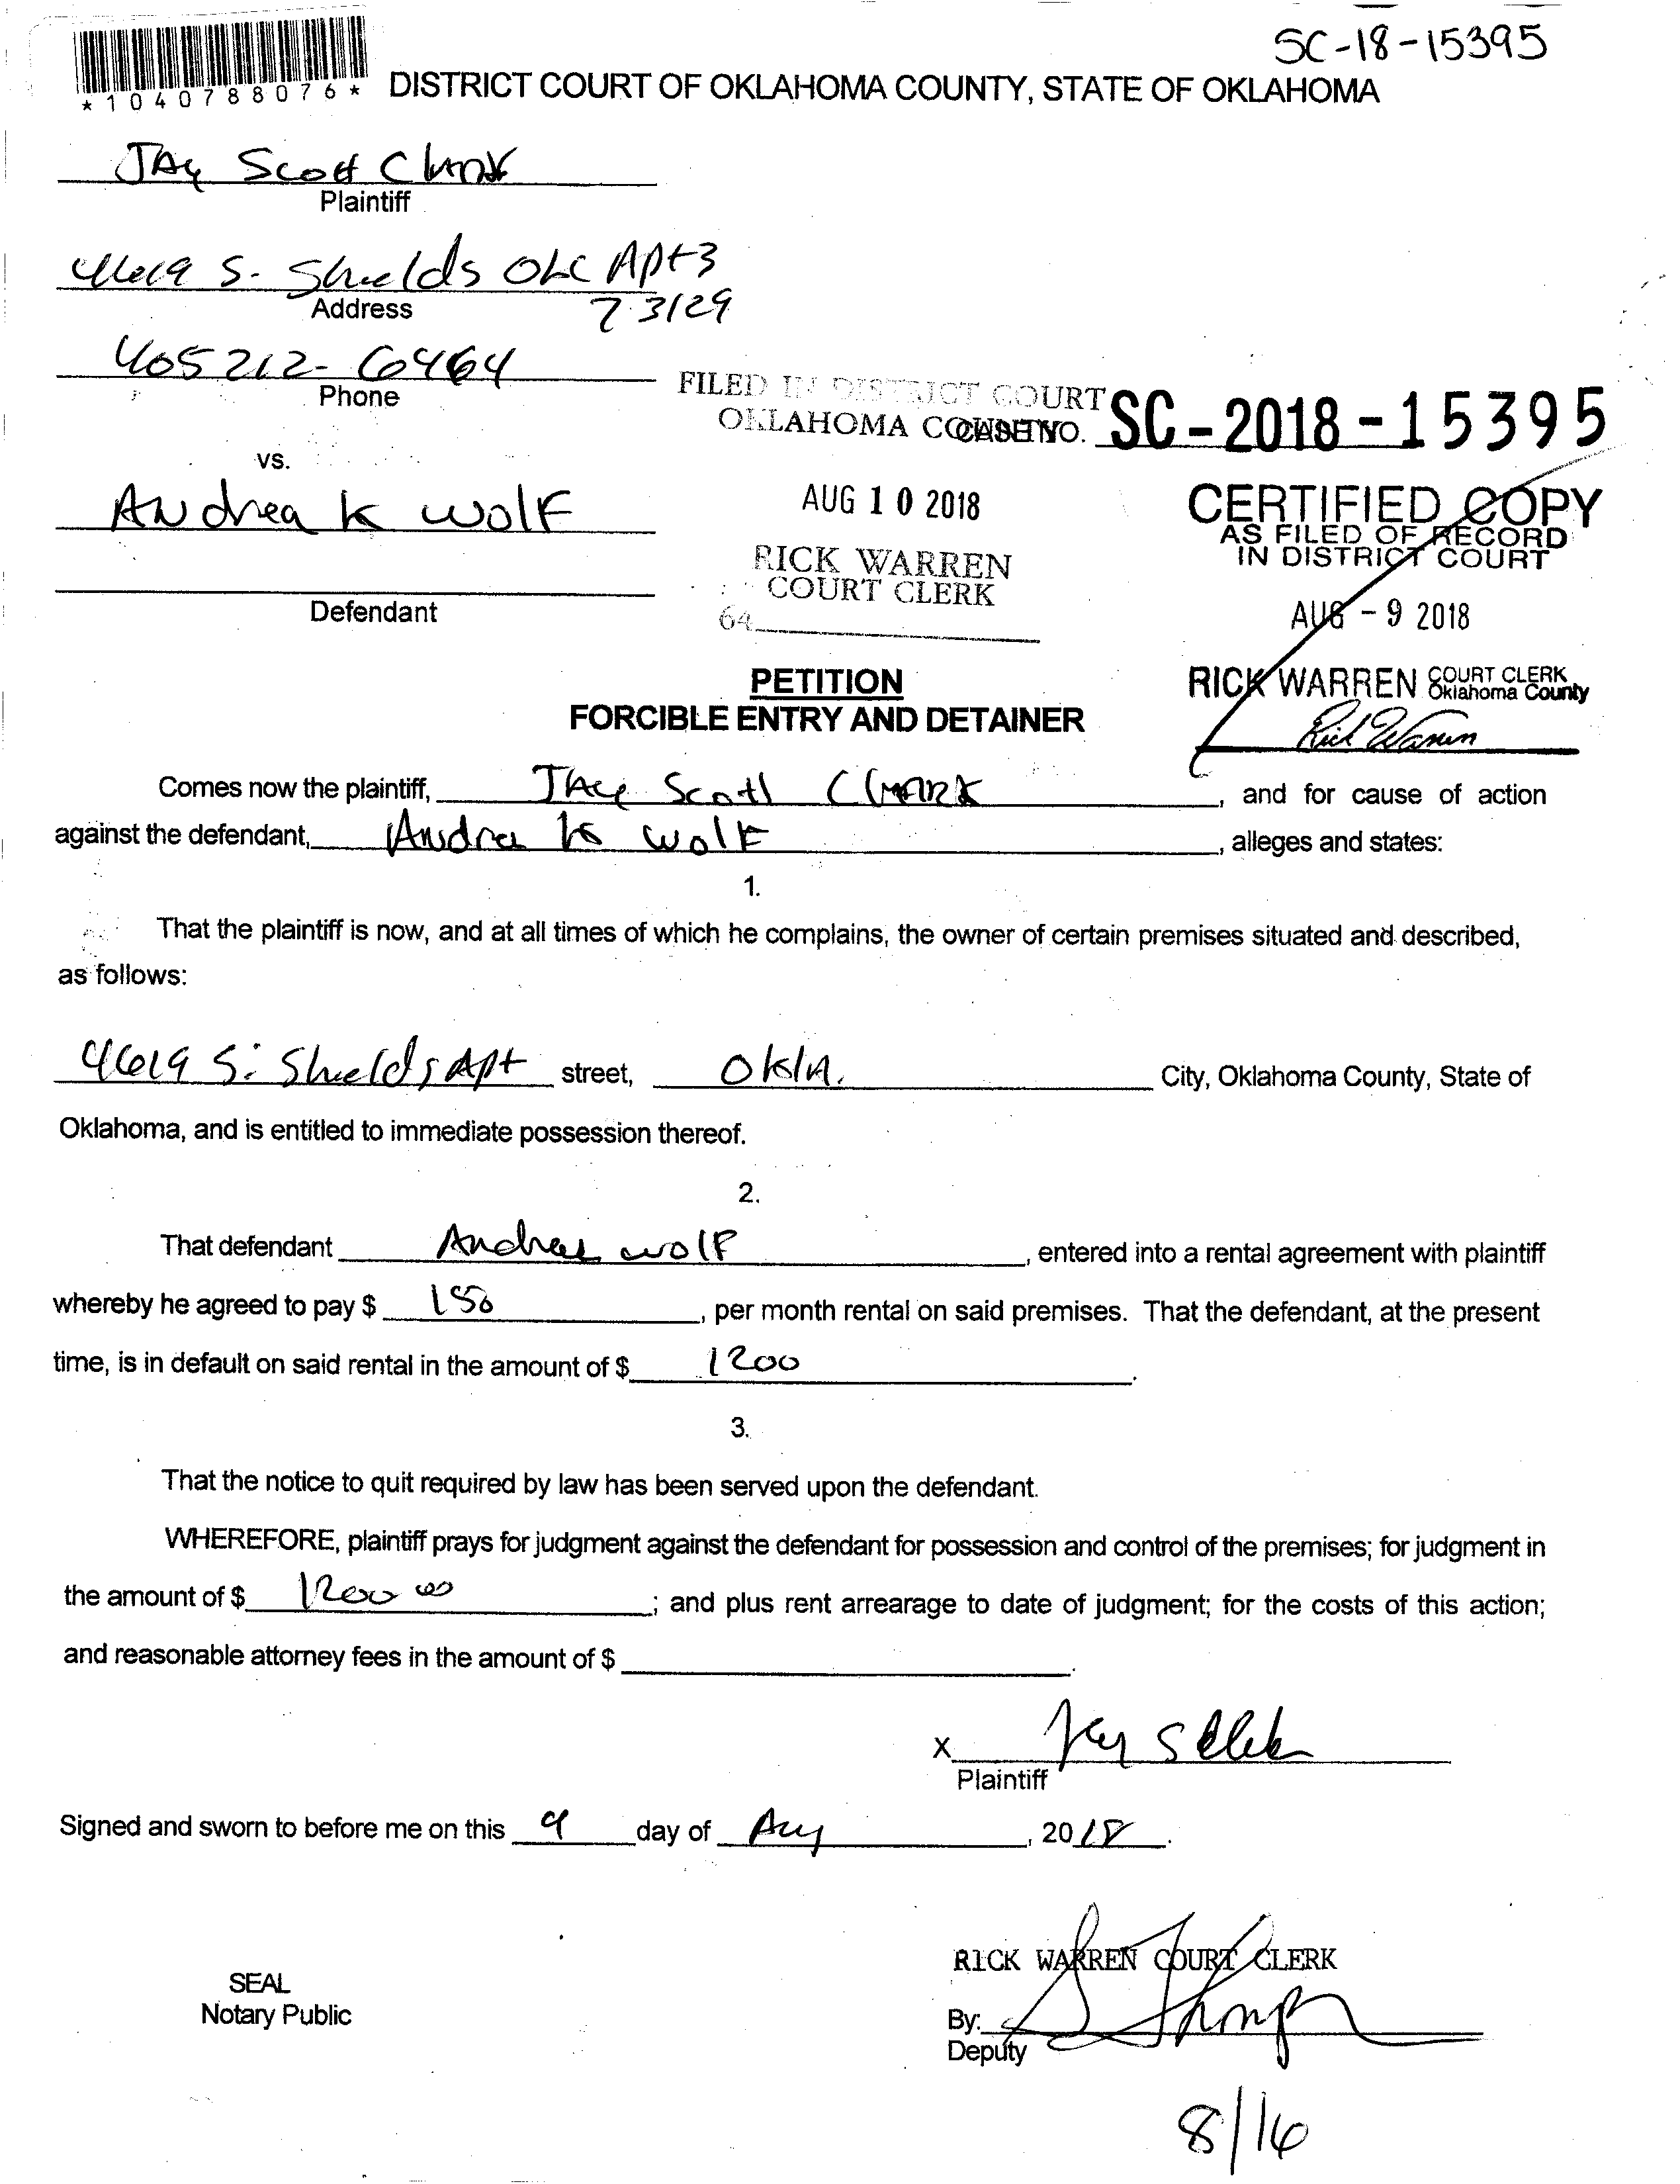 SC-18-15395
*1040788076*
DISTRICT COURT OF OKLAHOMA COUNTY, STATE OF OKLAHOMA
JAy Scott Clark
Plaintiff
4619 S. Shields OKC Apt 3
Address
73129
405 212-6464
Phone
FILED IN DISTRICT COURT
OKLAHOMA COUNTY
CASE NO. SC-2018-15395
vs.
Andrea K Wolf
AUG 10 2018
CERTIFIED COPY
AS FILED OF RECORD
IN DISTRICT COURT
RICK WARREN
COURT CLERK
Defendant
64
AUG - 9 2018
PETITION
RICK WARREN COURT CLERK
Oklahoma County
FORCIBLE ENTRY AND DETAINER
Rick Warren
Comes now the plaintiff, JAy Scott Clark, and for cause of action
against the defendant, Andrea K Wolf, alleges and states:
1.
That the plaintiff is now, and at all times of which he complains, the owner of certain premises situated and described,
as follows:
4619 S. Shields Apt street, Okla. City, Oklahoma County, State of
Oklahoma, and is entitled to immediate possession thereof.
2.
That defendant Andrea Wolf, entered into a rental agreement with plaintiff
whereby he agreed to pay $ 150, per month rental on said premises. That the defendant, at the present
time, is in default on said rental in the amount of $ 1200.
3.
That the notice to quit required by law has been served upon the defendant.
WHEREFORE, plaintiff prays for judgment against the defendant for possession and control of the premises; for judgment in
the amount of $ 1200 00; and plus rent arrearage to date of judgment; for the costs of this action;
and reasonable attorney fees in the amount of $.
X
Plaintiff
Signed and sworn to before me on this 9 day of Aug, 2018.
RICK WARREN COURT CLERK
SEAL
Notary Public
By:
Deputy
8/16